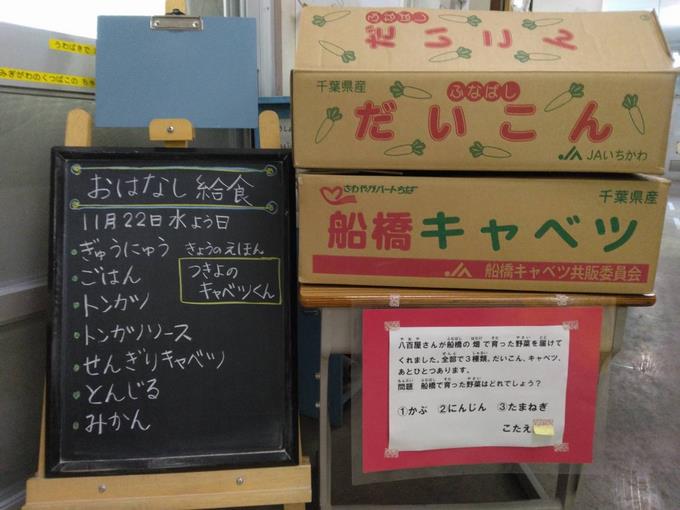 うわばきで
みぎがわのくつばこの
おはなし給食
11月22日水よう日
ぎゅうにゅう
ごはん
トンカツ
トンカツソース
せんぎりキャベツ
とんじる
みかん
きょうのえほん
つきよの
キャベツくん
ふなばし
だいこん
千葉県産
ふなばし
だいこん
JAいちかわ
さわやかハートちば
千葉県産
船橋キャベツ
JA 船橋キャベツ共販委員会
八百屋さんが船橋の畑で育った野菜を届けて
くれました。全部で3種類。だいこん、キャベツ、
あとひとつあります。
問題 船橋で育った野菜はどれでしょう?
①かぶ ②にんじん ③たまねぎ
こたえ